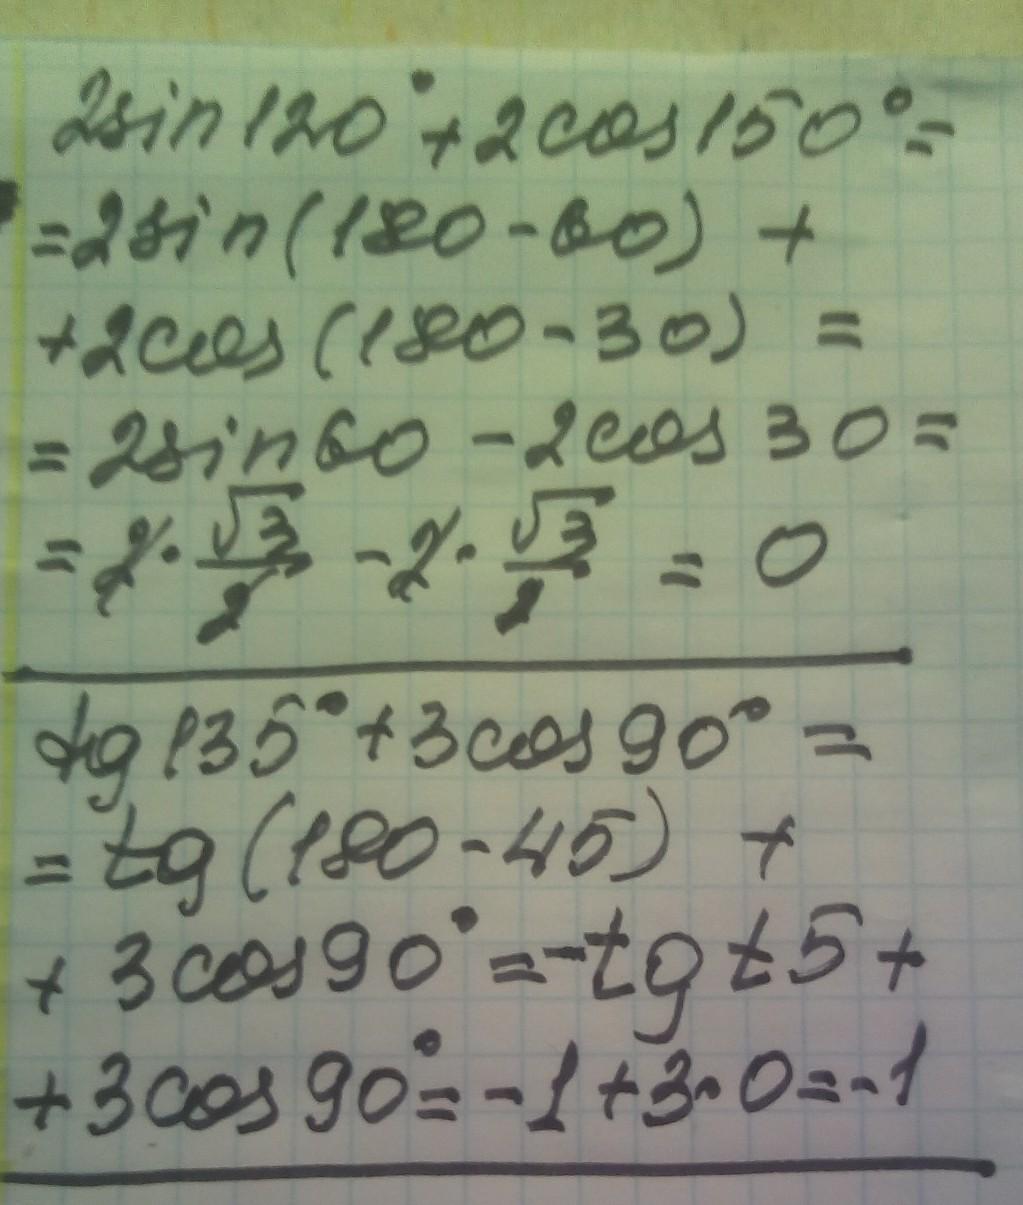 2sin120° + 2cos150° =
= 2sin(180 - 60) +
+ 2cos(180 - 30) =
= 2sin60 - 2cos 30 =
= 2 · √3/2 - 2 · √3/2 = 0
tg 135° + 3cos 90° =
= tg (180 - 45) +
+ 3cos90° = -tg t5 +
+ 3cos 90° = -1 + 3 · 0 = -1